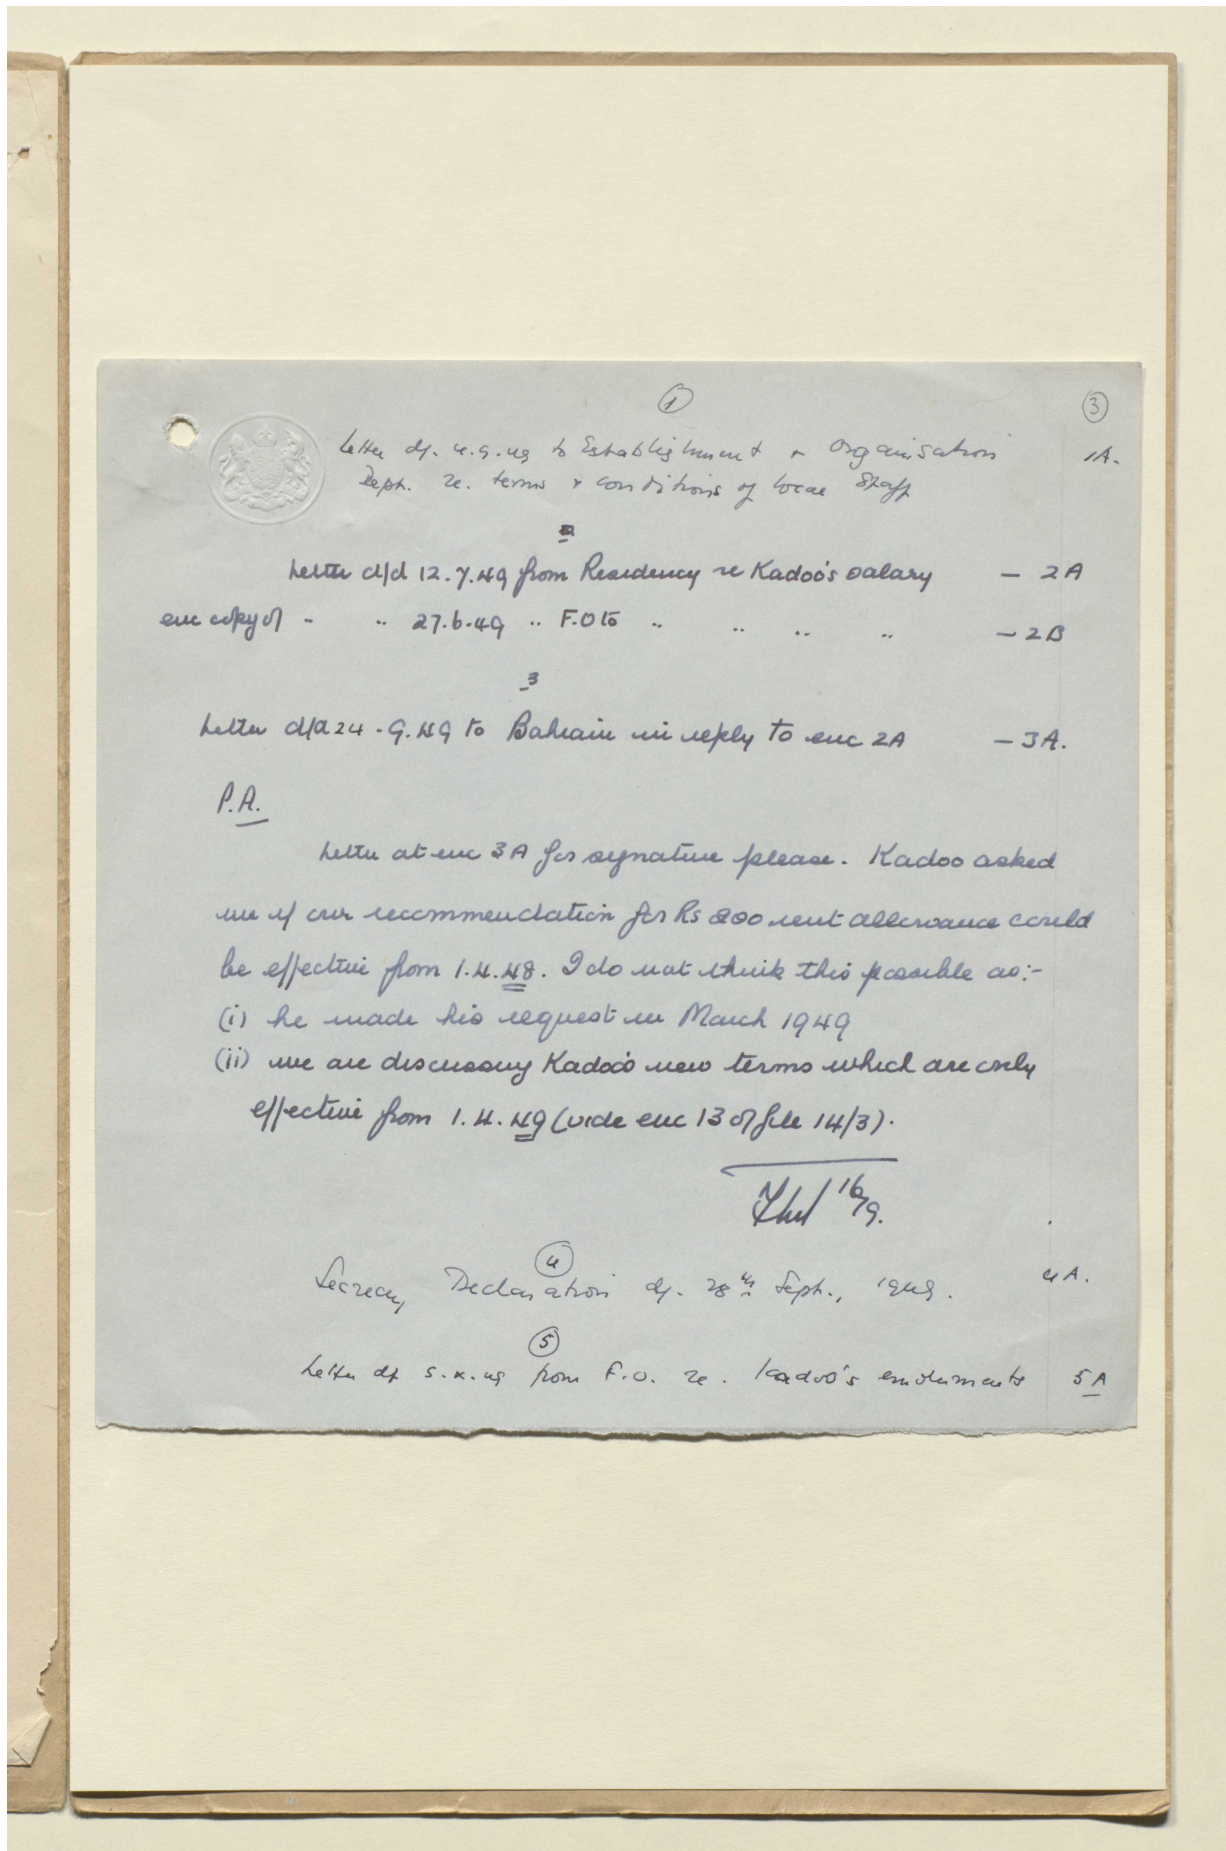 1
3
Letter dt. 4.9.49 to Establishment & Organisation 1A.
Dept. re. terms & conditions of local Staff
2
Letter d/d 12.7.49 from Residency re Kadoo's salary — 2A
enc copy of - " 27.6.49 " F.O to " " " " — 2B
3
Letter d/d 24.9.49 to Bahrain in reply to enc 2A — 3A.
P.A.
Letter at enc 3A for signature please. Kadoo asked
me if our recommendation for Rs 200 rent allowance could
be effective from 1.4.48. I do not think this possible as:-
(i) he made his request in March 1949
(ii) we are discussing Kadoo's new terms which are only
effective from 1.4.49 (vide enc 13 of file 14/3).
16/9.
4
Secrecy Declaration dt. 28th Sept., 1949. 4A.
5
Letter dt 5.x.49 from F.O. re. Kadoo's emoluments 5A